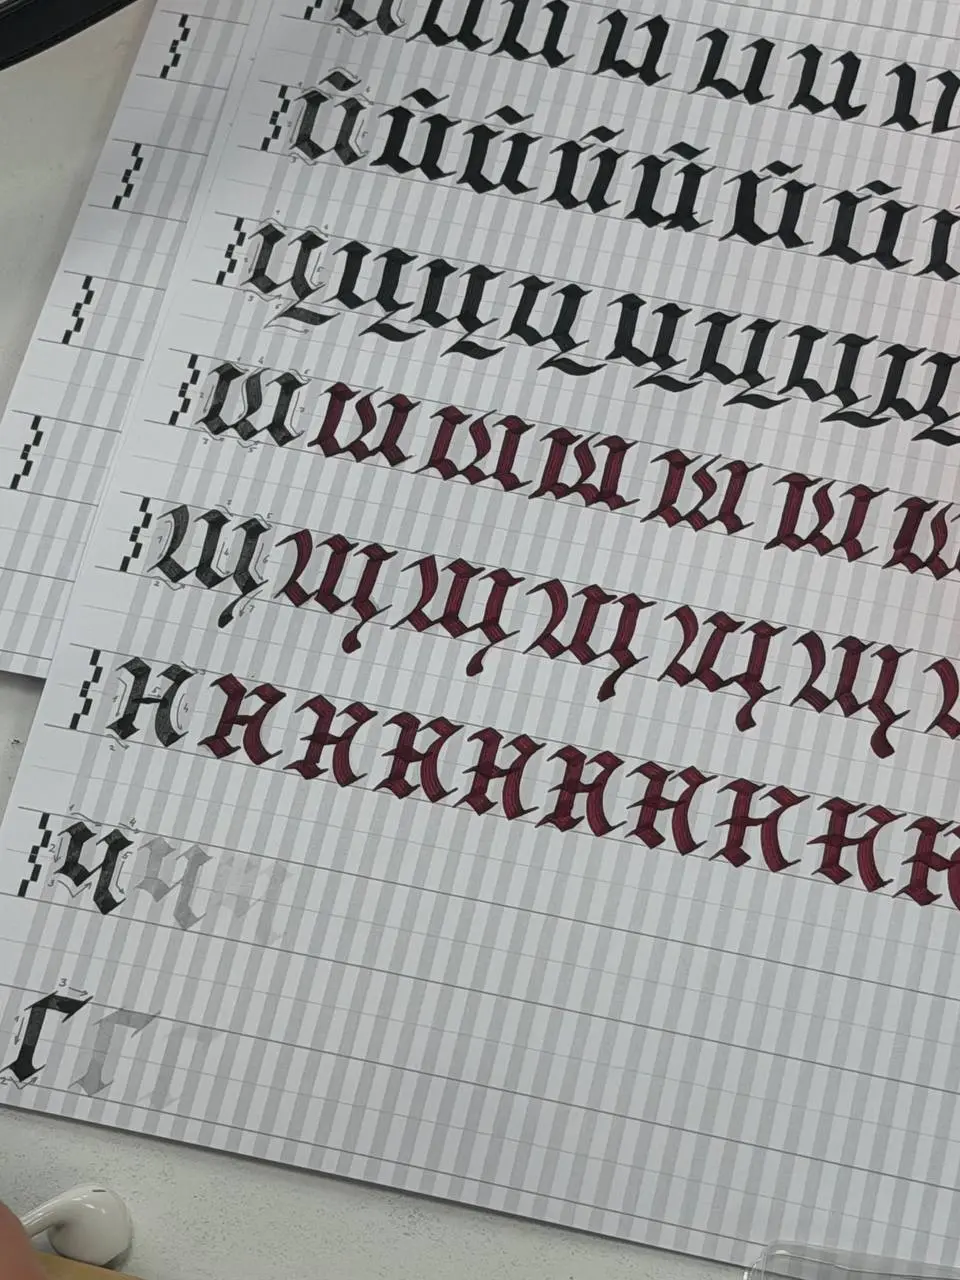 и и и и и и и
й й й й й й й й
ц ц ц ц ц ц ц ц
ш ш ш ш ш ш ш
щ щ щ щ щ щ
н н н н н н н н н н
ч ч ч
г г г